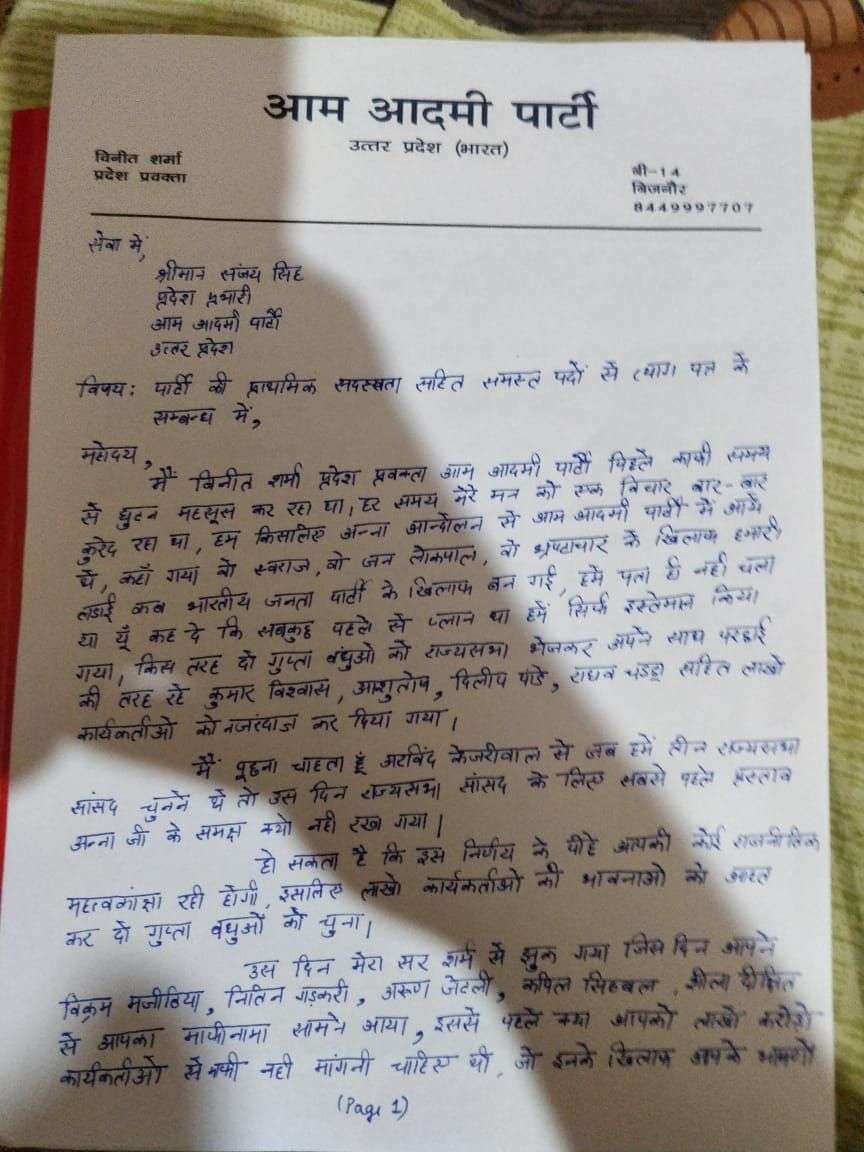 आम आदमी पार्टी
उत्तर प्रदेश (भारत)
विनीत शर्मा
प्रदेश प्रवक्ता
बी-14
बिजनौर
8449997707
सेवा में,
श्रीमान संजय सिंह
प्रदेश प्रभारी
आम आदमी पार्टी
उत्तर प्रदेश
विषय: पार्टी की प्राथमिक सदस्यता सहित समस्त पदों से त्याग पत्र के
सम्बन्ध में,
महोदय,
मैं विनीत शर्मा प्रदेश प्रवक्ता आम आदमी पार्टी पिछले काफी समय
से घुटन महसूस कर रहा था, हर समय मेरे मन को एक विचार बार-बार
कुरेद रहा था, हम किसलिए अन्ना आन्दोलन से आम आदमी पार्टी में आये
थे, कहाँ गया वो स्वराज, वो जन लोकपाल, वो भ्रष्टाचार के खिलाफ हमारी
लडाई कब भारतीय जनता पार्टी के खिलाफ बन गई, हमें पता ही नहीं चला
या यूँ कह दे कि सबकुछ पहले से प्लान था हमें सिर्फ इस्तेमाल किया
गया, किस तरह दो गुप्ता बंधुओ को राज्यसभा भेजकर अपने साथ परछाई
की तरह रहे कुमार विश्वास, आशुतोष, दिलीप पांडे, राघव चड्ढा सहित लाखो
कार्यकर्ताओ को नजरंदाज कर दिया गया।
मैं पूछना चाहता हूँ अरविंद केजरीवाल से जब हमें तीन राज्यसभा
सांसद चुनने थे तो उस दिन राज्यसभा सांसद के लिए सबसे पहले प्रस्ताव
अन्ना जी के समक्ष क्यो नही रखा गया।
हो सकता है कि इस निर्णय के पीछे आपकी कोई राजनीतिक
महत्वकांक्षा रही होगी, इसलिए लाखो कार्यकर्ताओ की भावनाओ को आहत
कर दो गुप्ता बंधुओं को चुना।
उस दिन मेरा सर शर्म से झुक गया जिस दिन आपने
विक्रम मजीठिया, नितिन गडकरी, अरूण जेटली, कपिल सिब्बल, शीला दीक्षित
से आपका माफीनामा सामने आया, इससे पहले क्या आपको लाखो करोडो
कार्यकर्ताओ से माफी नही मांगनी चाहिए थी, जो इनके खिलाफ आपके भाषणों
(Page 1)